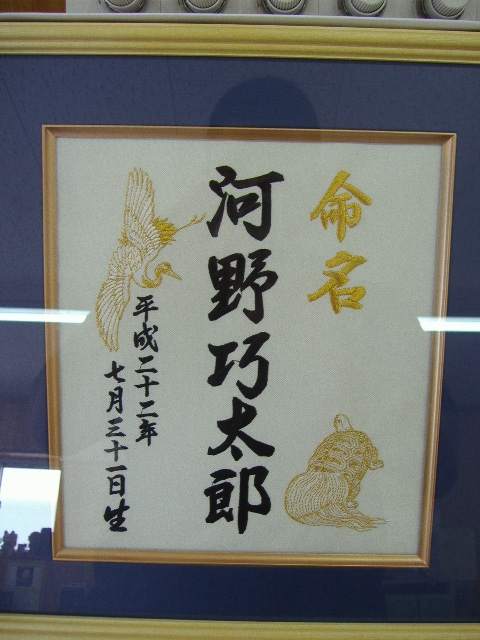 命名
河野巧太郎
平成二十二年
七月三十一日生